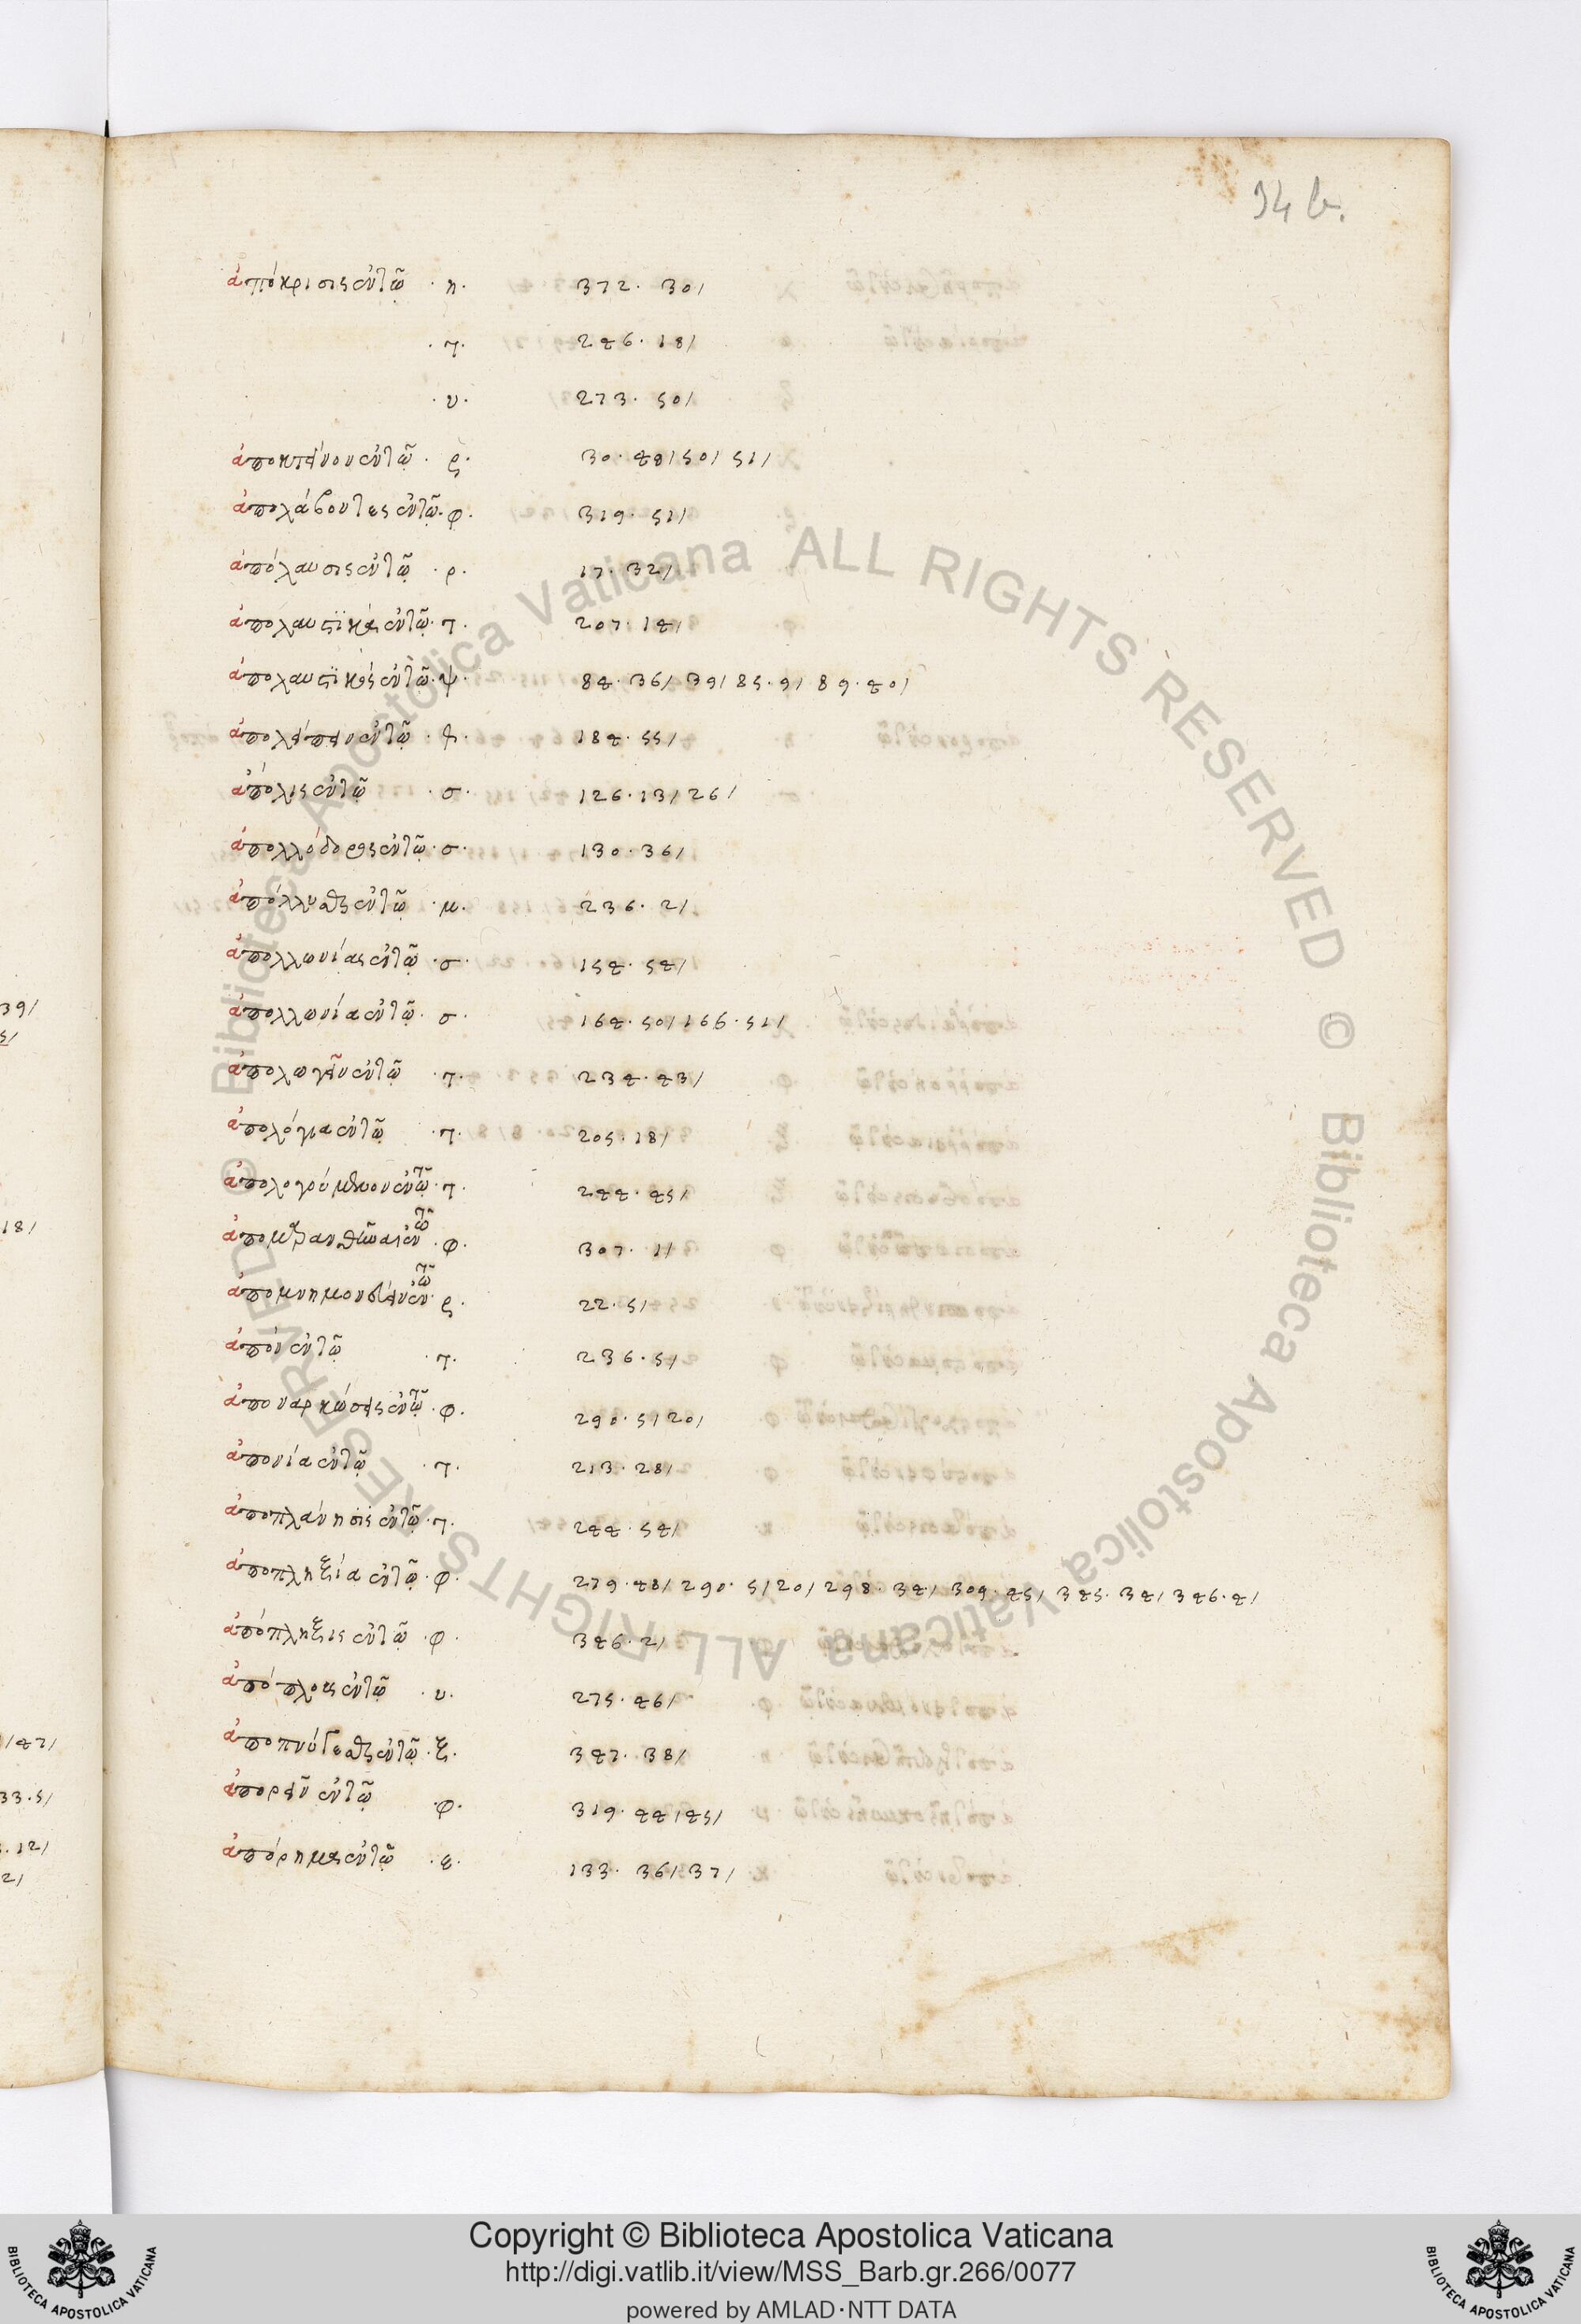 34 b.
ἀπόκρισις ἐν τῷ · η · 372 · 30/
· τ · 246 · 18/
· υ · 273 · 50/
ἀποκτείνον ἐν τῷ · ρ · 30 · 48/ 50/ 51/
ἀπολάβοντες ἐν τῷ · φ · 319 · 51/
ἀπόλαυσις ἐν τῷ · ρ · 17 · 32/
ἀπολαυστικὰς ἐν τῷ · τ · 207 · 14/
ἀπολαυστικὸς ἐν τῷ · ψ · 84 · 36/ 39/ 85 · 9/ 89 · 40/
ἀπολείπειν ἐν τῷ · 184 · 55/
ἄπολις ἐν τῷ · σ · 126 · 13/ 26/
ἀπολλόδορος ἐν τῷ · σ · 130 · 36/
ἀπόλλυσθαι ἐν τῷ · μ · 236 · 2/
ἀπολλωνίας ἐν τῷ · σ · 154 · 54/
ἀπολλωνία ἐν τῷ · σ · 164 · 50/ 166 · 51/
ἀπολωγεῖν ἐν τῷ · τ · 234 · 43/
ἀπολόγια ἐν τῷ · τ · 205 · 18/
ἀπολογούμενον ἐν τῷ · τ · 244 · 45/
ἐν τῷ · φ · 307 · 11/
ἀπομνημονεύειν ἐν τῷ · ρ · 22 · 51/
ἀπὸν ἐν τῷ · τ · 236 · 51/
ἀποναρκώσεις ἐν τῷ · φ · 290 · 5/ 20/
ἀπονία ἐν τῷ · τ · 213 · 28/
ἀποπλάνησις ἐν τῷ · τ · 244 · 54/
ἀποπληξία ἐν τῷ · φ · 279 · 48/ 290 · 5/ 20/ 298 · 34/ 309 · 45/ 345 · 34/ 346 · 4/
ἀπόπληξις ἐν τῷ · φ · 346 · 2/
ἀπόπλους ἐν τῷ · υ · 275 · 46/
ἀποπνίγεσθαι ἐν τῷ · ξ · 347 · 38/
ἀπορεῖν ἐν τῷ · φ · 319 · 44/ 45/
ἀπόρημα ἐν τῷ · ε · 133 · 36/ 37/
39/
18/
/47/
33 · 5/
· 12/
2/
© Biblioteca Apostolica Vaticana ALL RIGHTS RESERVED © Biblioteca Apostolica Vaticana ALL RIGHTS RESERVED
Copyright © Biblioteca Apostolica Vaticana
http://digi.vatlib.it/view/MSS_Barb.gr.266/0077
powered by AMLAD·NTT DATA
BIBLIOTECA APOSTOLICA VATICANA
BIBLIOTECA APOSTOLICA VATICANA